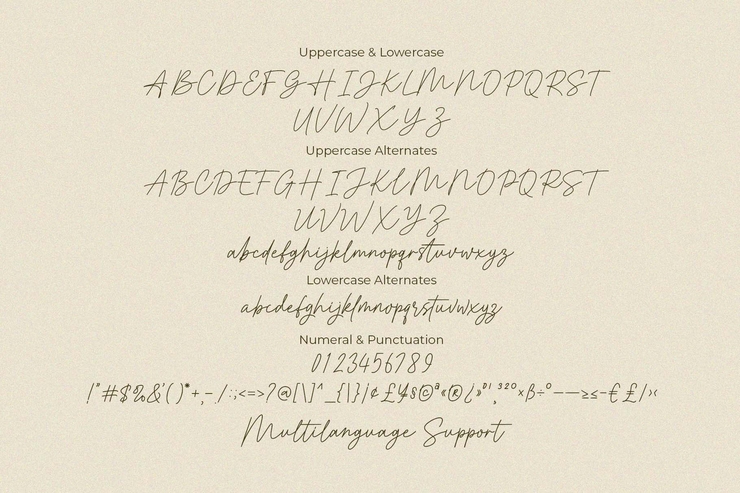 Uppercase & Lowercase
ABCDEFGHIJKLMNOPQRST
UVWXYZ
Uppercase Alternates
ABCDEFGHIJKLMNOPQRST
UVWXYZ
abcdefghijklmnopqrstuvwxyz
Lowercase Alternates
abcdefghijklmnopqrstuvwxyz
Numeral & Punctuation
0123456789
!"#$%&'()*+,-./:;<=>?@[\]^_{|}¢£¥§©ª«®¿»
Multilanguage Support